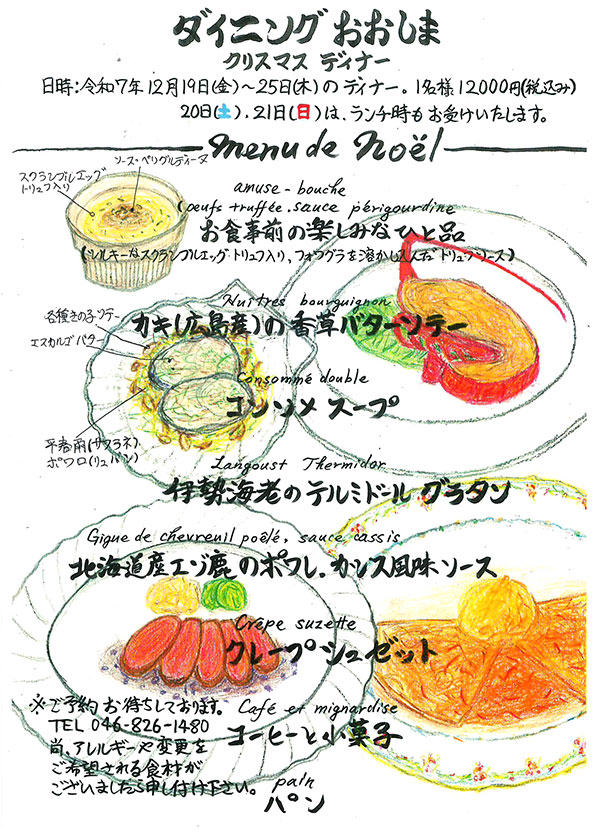 ダイニング おおしま
クリスマス ディナー
日時:令和7年12月19日(金)〜25日(木)のディナー。1名様12000円(税込み)
20日(土).21日(日)は、ランチ時もお受けいたします。
menu de noël
ソース・ペリグルディーヌ
スクランブルエッグ
トリュフ入り
amuse-bouche
(oeufs truffée.sauce périgourdine
お食事前の楽しみなひと品
(シルキーなスクランブルエッグ・トリュフ入り,フォワグラを溶かし込んだトリュフソース)
Nuitres bourguignon
カキ(広島産)の香草バターソテー
各種きの子ソテー
エスカルゴバター
Consommé double
コンソメ スープ
平春雨(サワラネ)
ポワロ(リュバン)
Langoust Thermidor
伊勢海老のテルミドール グラタン
Gigue de chevreuil poêlé, sauce cassis
北海道産エゾ鹿のポワレ.カシス風味ソース
Crêpe suzette
クレープシュゼット
Café et mignardise
コーヒーと小菓子
※ご予約お待ちしております。
TEL 046-826-1480
尚、アレルギーや変更を
ご希望される食材が
ございましたら申し付け下さい。
pain
パン